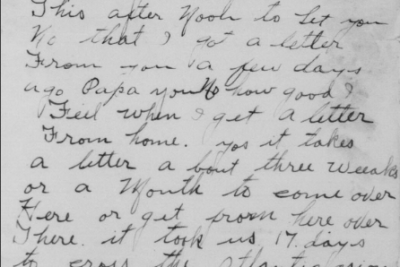 This after Nooh to Let you
No that I got a letter
From you a few days
ago Papa you No how good I
Feel when I get a letter
From home. yes it takes
a letter a bout three weeaks
or a Month to come over
Here or get from here over
There. it took us 17. days
to cross the atlantic